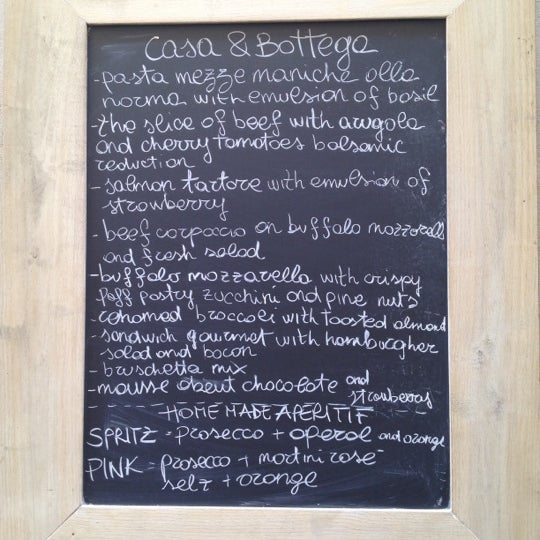 Casa & Bottega
-pasta mezze maniche alla
norma with emulsion of basil
-the slice of beef with arugola
and cherry tomatoes balsamic
reduction
- salmon tartare with emulsion of
strawberry
- beef carpaccio on buffalo mozzarella
and fresh salad
-buffalo mozzarella with crispy
paff pastry zucchini and pine nuts
-cohomed broccoli with toasted almond
-sandwich gourmet with hamburgher
salad and bacon
- bruschetta mix
-mousse about chocolate and
strawberry
HOME MADE APERITIF
SPRITZ = prosecco + aperol and orange
PINK = prosecco + martini rosè
selz + orange